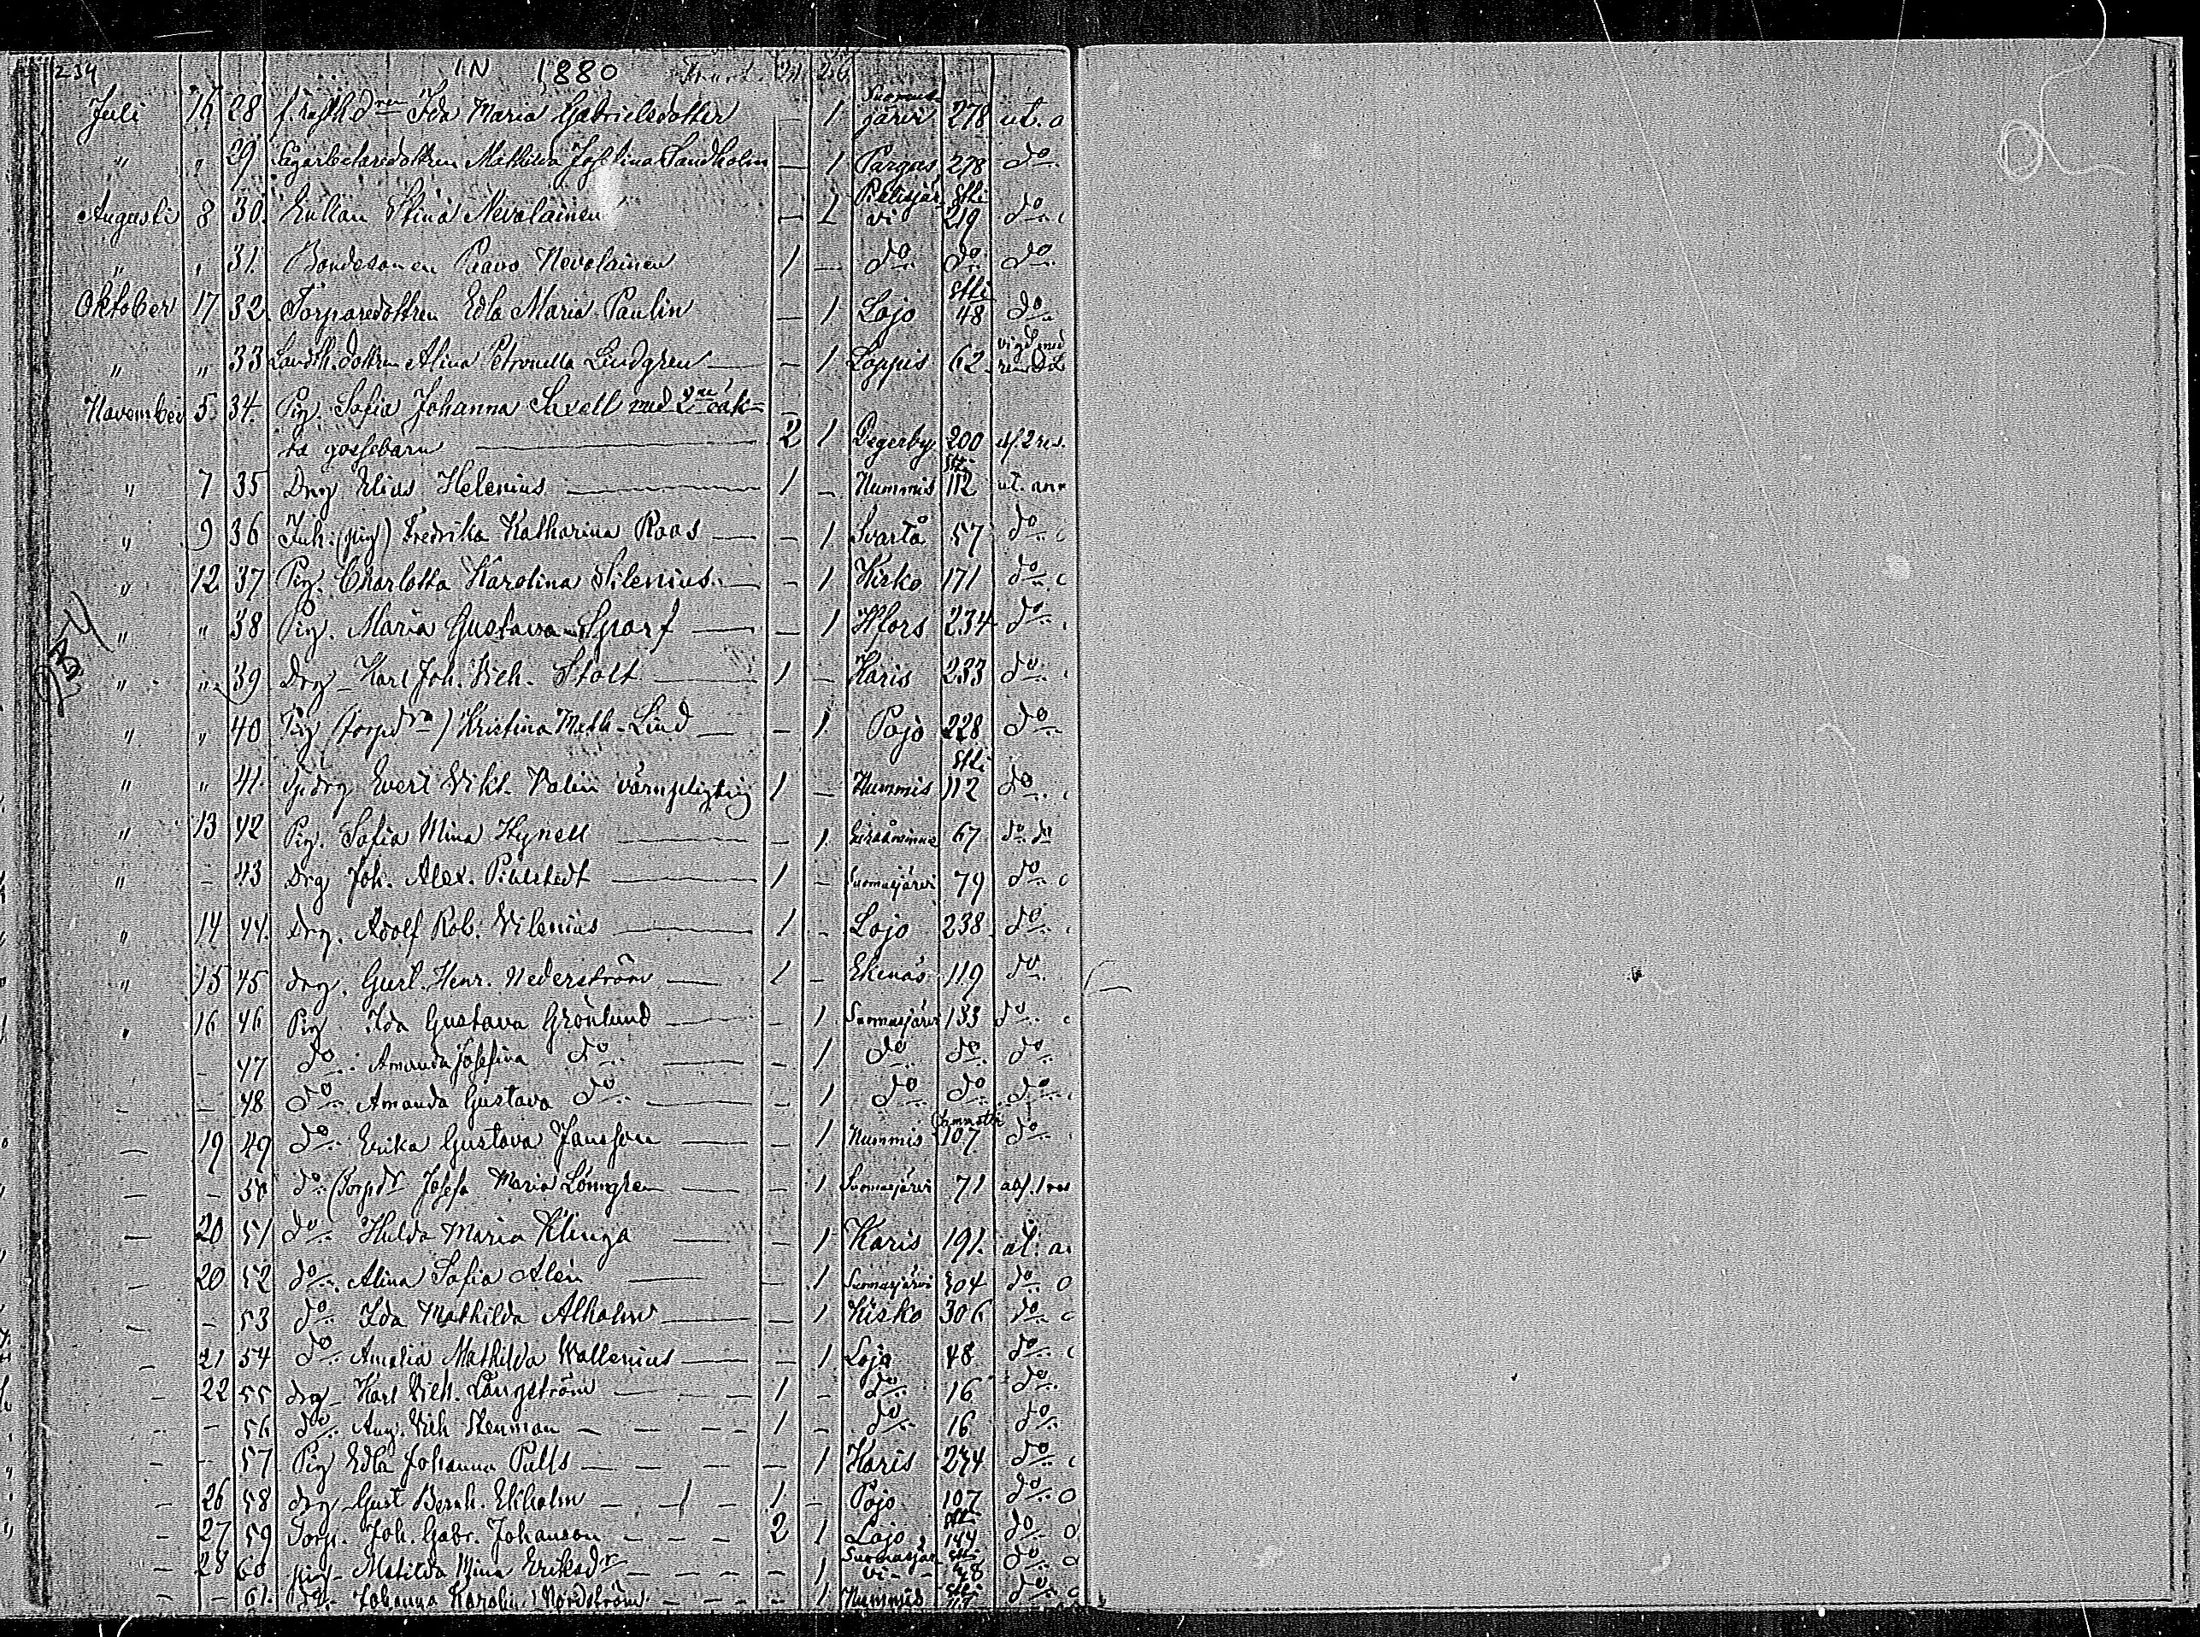 234 IN 1880
Juli 16 28 Ida Maria Gabrielsdotter — 1 Suomusjärvi 278 ut. a
" " 29 Mathilda Josefina Sandholm — 1 Pargas 278 do
Augusti 8 30. Enkan Stina Nevalainen — 1 Pielisjärvi 219 do
" " 31. Bondesonen Paavo Nevalainen 1 — do do do
Oktober 17 32. Torparedottren Edla Maria Paulin — 1 Lojo 48 do
" " 33 Landth. dottren Alina Petronella Lindgren — — 1 Loppis 62
November 5 34. Pig. Sofia Johanna Saxell med 2ne oäk-
ta gossebarn — 2 1 Degerby 200
" 7 35 Drg Elias Helenius — 1 — Nummis 112 ut. an
" 9 36 Inh. (pig) Fredrika Katharina Roos — — 1 Svartå 57 do
" 12 37 Pig. Charlotta Karolina Silenius — — 1 Kisko 171 do
" " 38 Pig. Maria Gustava Sparf — — 1 Hfors 234 do
" " 39 Drg Karl Joh. Vilh. Stolt — 1 — Karis 233 do
" " 40 Pig (torpdrn) Kristina Math. Lind — — 1 Pojo 228 do
" " 41. drg Evert Vikt. Valin värnpligtig 1 — Nummis 112 do
" 13 42 Pig. Sofia Mina Hynell — — 1 67 do do
" — 43 Drg Joh. Alex. Pihlstedt — 1 — Suomusjärvi 79 do
" 14 44. Drg. Adolf Rob. Vilenius — 1 — Lojo 238 do
" 15 45 drg. Gust. Henr. Nederström — 1 — Ekenäs 119 do
" 16 46 Pig Ida Gustava Grönlund — — 1 Suomusjärvi 133 do
— 47 do Amanda Josefina do — — 1 do do do
— — 48 do Amanda Gustava do — — 1 do do do
— 19 49 do Erika Gustava Jansson — — 1 Nummis 107 do
— — 50 do (Torpdr Josefa Maria Lönngren — — 1 Suomusjärvi 71
— 20 51 do Hulda Maria Klinga — — 1 Karis 191. at. a.
— 20 52 do Alina Sofia Alén — — 1 Suomusjärvi 304 do
— — 53 do Ida Mathilda Alholm — 1 Kisko 306 do
— 21 54 do Amalia Mathilda Wallenius — — 1 Lojo 48 do
— 22 55 drg Karl Vilh. Långström — 1 — do 16 do
— — 56 do Aug. Vilh Stenman — 1 — do 16 do
— — 57 Pig Edla Johanna Palls — — 1 Karis 274 do
— 26 58 drg Gust Bernh. Ekholm — 1 — Pojo 107 do
— 27 59 Torp. Joh. Gabr. Johanson — 2 1 Lojo 144 do
— 28 60 pig Matilda Mina Eriksdr — — 1 Suomusjärvi 48 do
— — 61. do Johanna Karolin. Nordström — — 1 Nummis 117 do